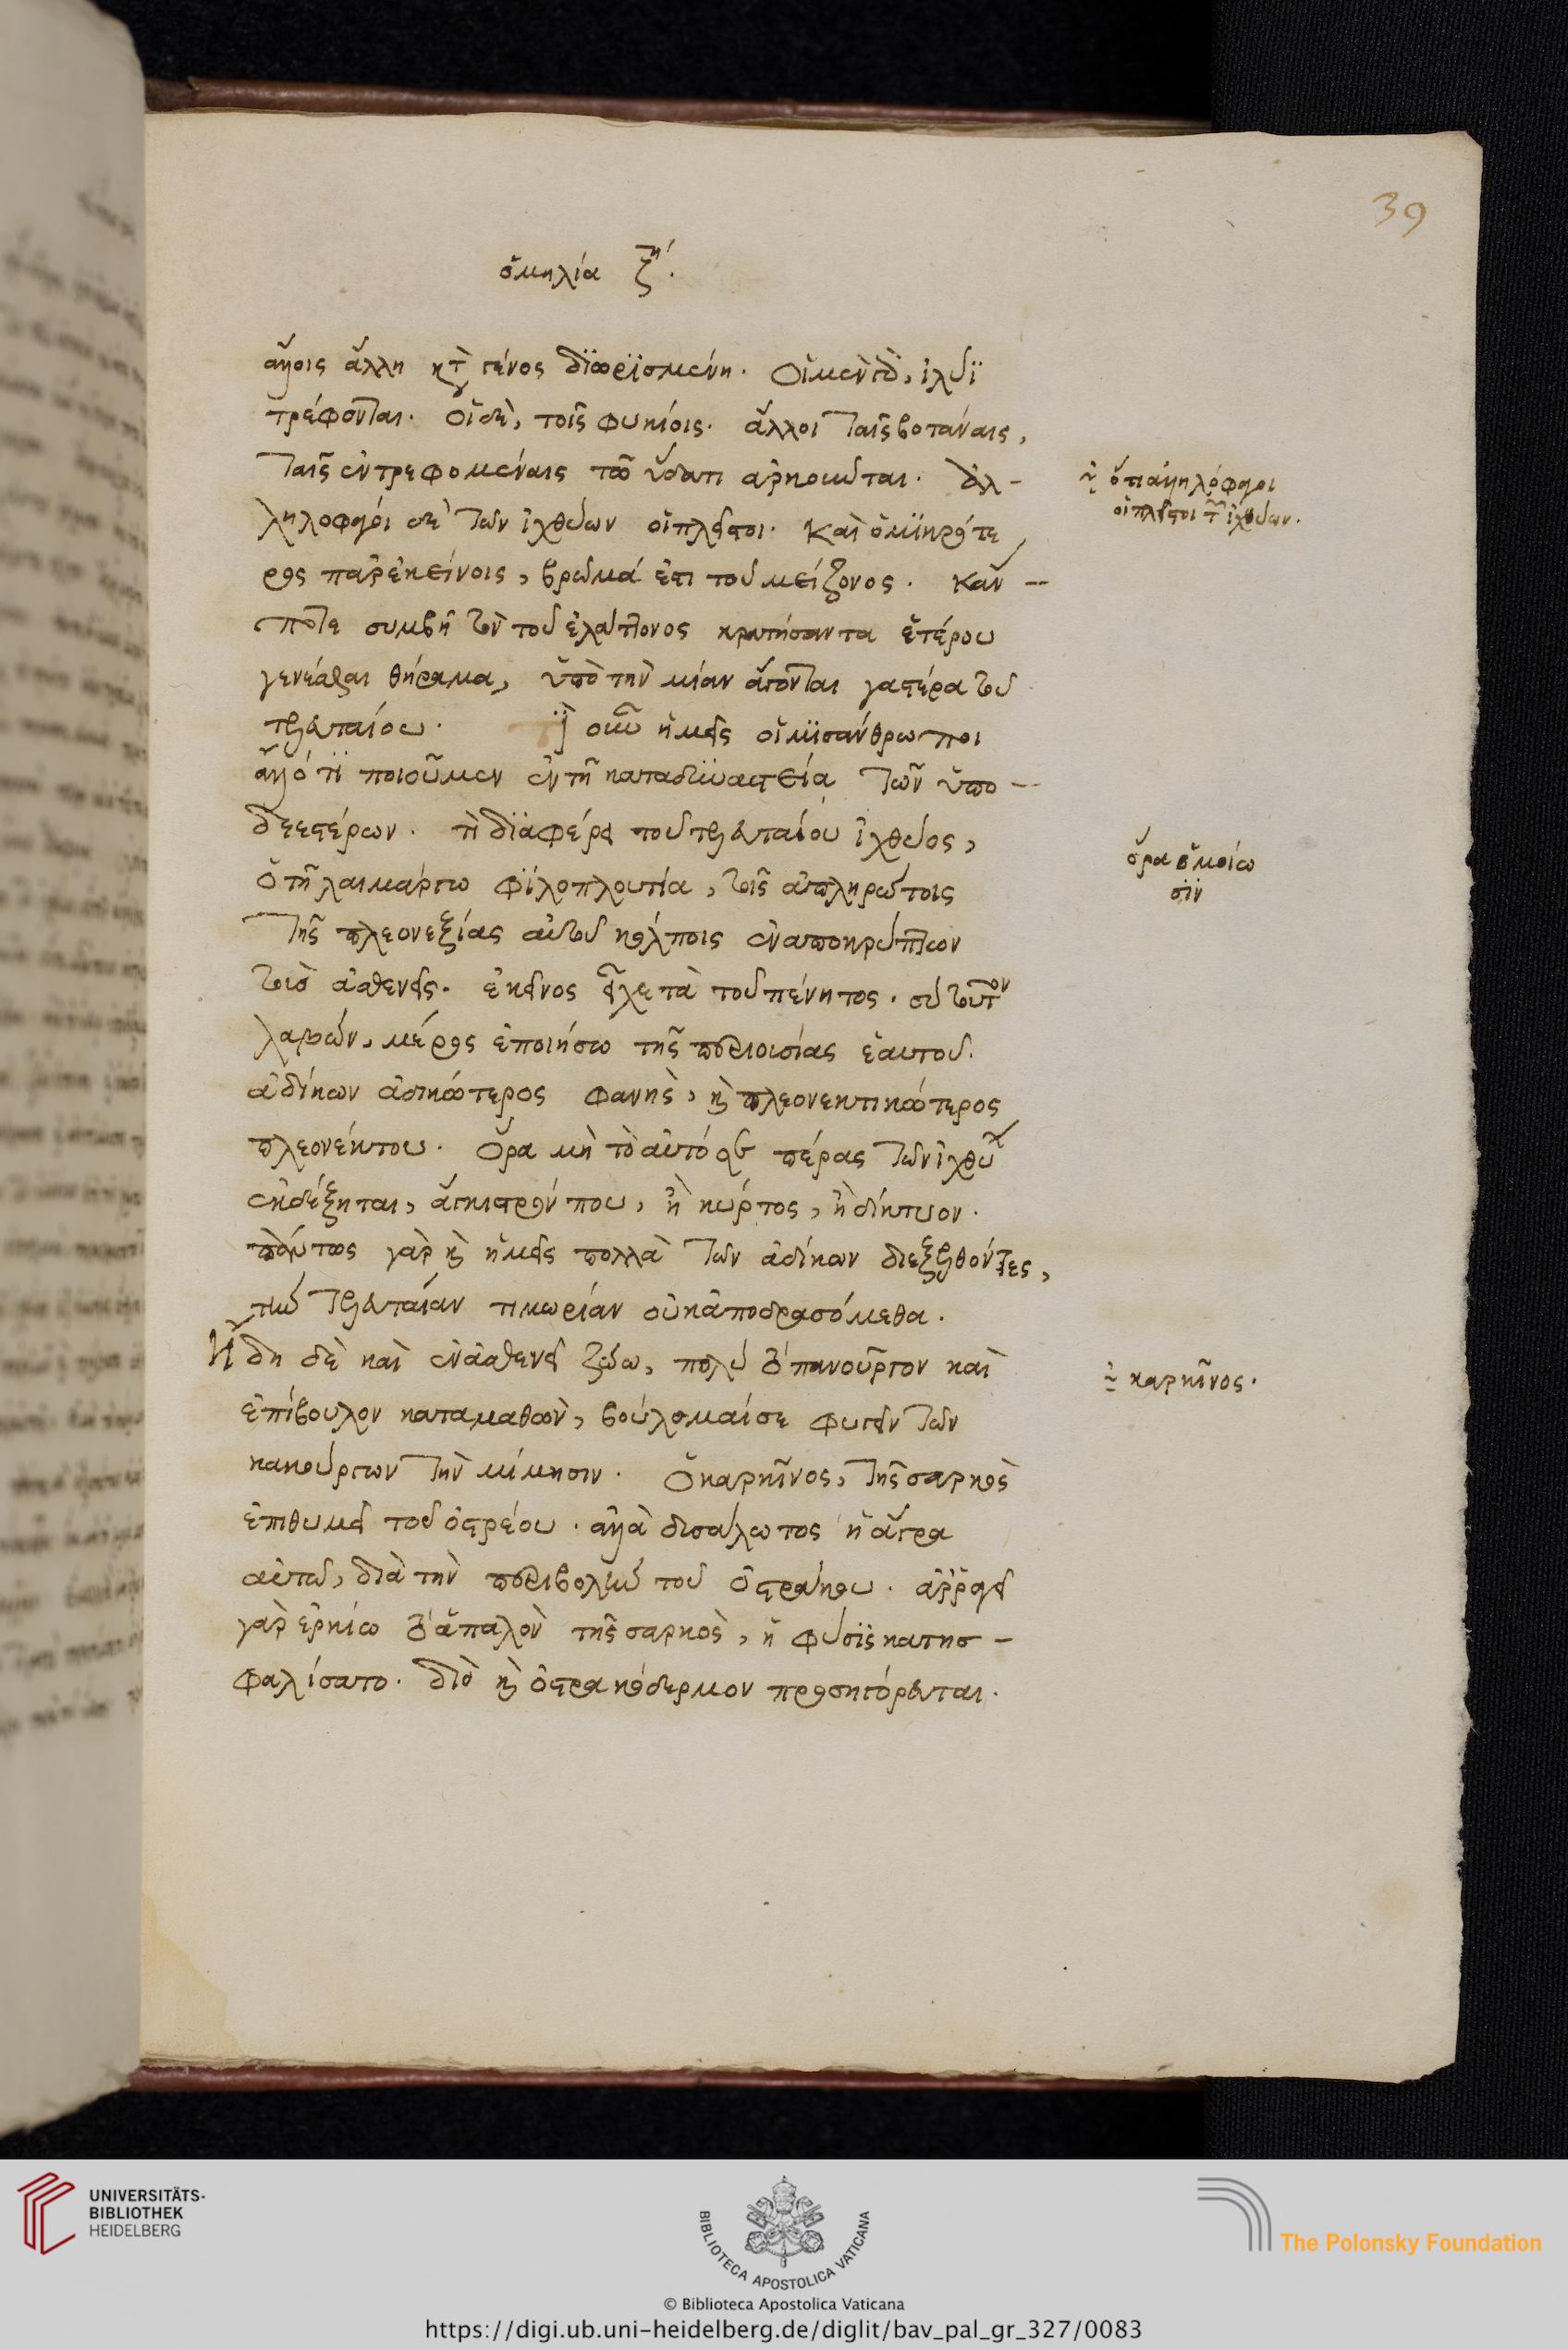 ὁμηλία ζη´.
39
ἄλλοις ἄλλη κτ̀ γένος διωρϊσμένη. Οἱ μὲν γὰρ, ἰλύϊ
τρέφονται. οἱ δὲ, τοῖς φυκίοις. ἄλλοι ταῖς βοτάναις,
ταῖς ἐντρεφομέναις τῶ ὕδατι ἀρκοῦνται. ἀλ-
ληλοφάγοι δὲ τῶν ἰχθύων οἱ πλεῖστοι. Καὶ ὁ μϊκρότε
ρος παρ ἐκείνοις, βρῶμά ἐστι τοῦ μείζονος. Κἂν -
ποτε συμβῆ τὸν τοῦ ἐλάττονος κρατήσαντα ἑτέρου
γενέσθαι θήραμα, ὑπὸ τὴν μίαν ἄγονται γαστέρα τοῦ
τελευταίου. τί οὖν ἡμεῖς οἱ μϊσάνθρωποι
ἄλλό τϊ ποιοῦμεν ἐν τῆ καταδϋναστεία τῶν ὑπο-
δεεστέρων. τί διαφέρει τοῦ τελευταίου ἰχθύος,
ὁ τῆ λαιμάργω φϊλοπλουτία, τοῖς ἀπληρώτοις
τῆς πλεονεξίας αὐτοῦ κόλποις ἐναποκρύπτων
τοὺς ἀσθενεῖς. ἐκεῖνος εἶχε τὰ τοῦ πένητος. σὺ τοῦτον
λαβὼν, μέρος ἐποιήσω τῆς περιουσίας ἑαυτοῦ.
ἀδίκων ἀδικώτερος φανῆς, καὶ πλεονεκτικώτερος
πλεονέκτου. Ὅρα μὴ τὸ αὐτό σε πέρας τῶν ἰχθύων
ἐκδέξηται, ἄγκιστρόν που, ἢ κύρτος, ἢ δίκτυον.
πάντως γὰρ καὶ ἡμεῖς πολλὰ τῶν ἀδίκων διεξελθόντες,
τὴν τελευταίαν τιμωρίαν οὐκ ἀποδρασόμεθα.
Ἤδη δὲ καὶ ἐν ἀσθενεῖ ζώω, πολὺ τὸ πανοῦργον καὶ
ἐπίβουλον καταμαθὼν, βούλομαί σε φυγεῖν τῶν
κακούργων τὴν μίμησιν. Ὁ καρκῖνος, τῆς σαρκὸς
ἐπιθυμεῖ τοῦ ὀστρέου. ἀλλὰ δυσάλωτος ἡ ἄγρα
αὐτῶ, διὰ τὴν περιβολὴν τοῦ ὀστράκου. ἀῤῥαγεῖ
γὰρ ἑρκίω τὸ ἁπαλὸν τῆς σαρκὸς, ἡ φύσϊς κατησ-
φαλίσατο. διὸ καὶ ὀστρακόδερμον προσηγόρευται.
ὅτι ἀλληλοφάγοι
οἱ πλεῖστοι τῶν ἰχθύων.
ὅρα ὁμοίω
σϊν
καρκῖνος.
UNIVERSITÄTS-
BIBLIOTHEK
HEIDELBERG
BIBLIOTECA APOSTOLICA VATICANA
© Biblioteca Apostolica Vaticana
The Polonsky Foundation
https://digi.ub.uni-heidelberg.de/diglit/bav_pal_gr_327/0083